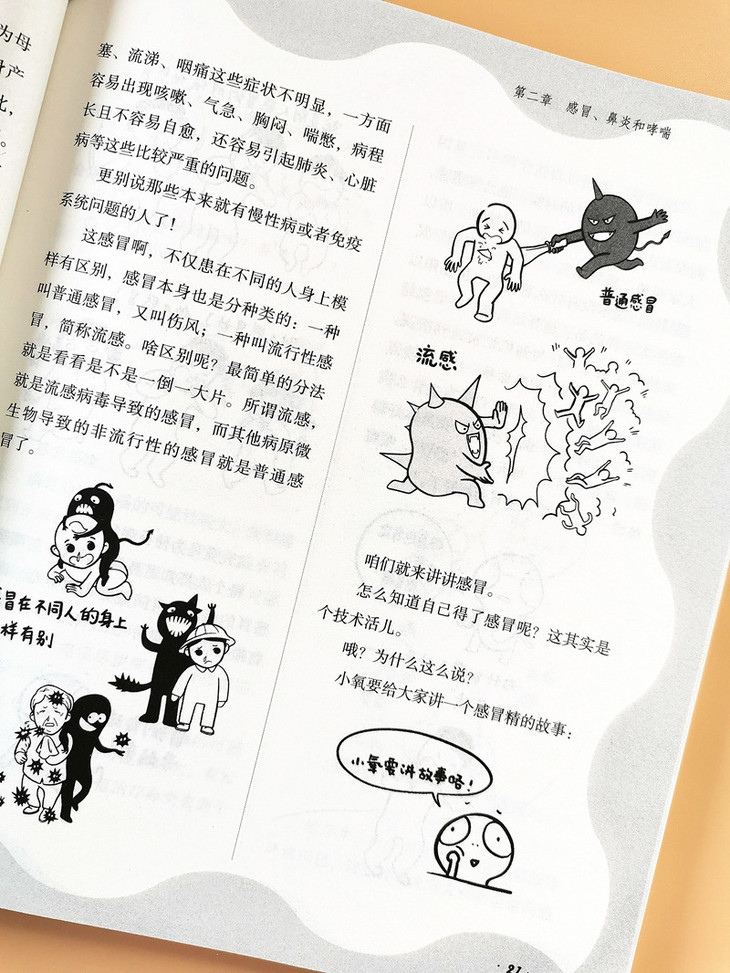 为母
比，
塞、流涕、咽痛这些症状不明显，一方面
容易出现咳嗽、气急、胸闷、喘憋，病程
长且不容易自愈，还容易引起肺炎、心脏
病等这些比较严重的问题。
更别说那些本来就有慢性病或者免疫
系统问题的人了！
这感冒啊，不仅患在不同的人身上模
样有区别，感冒本身也是分种类的：一种
叫普通感冒，又叫伤风；一种叫流行性感
冒，简称流感。啥区别呢？最简单的分法
就是看看是不是一倒一大片。所谓流感，
就是流感病毒导致的感冒，而其他病原微
生物导致的非流行性的感冒就是普通感
冒了。
冒在不同人的身上
样有别
第二章 感冒、鼻炎和哮喘
普通感冒
流感
咱们就来讲讲感冒。
怎么知道自己得了感冒呢？这其实是
个技术活儿。
哦？为什么这么说？
小氧要给大家讲一个感冒精的故事：
小氧要讲故事咯！
· 21 ·